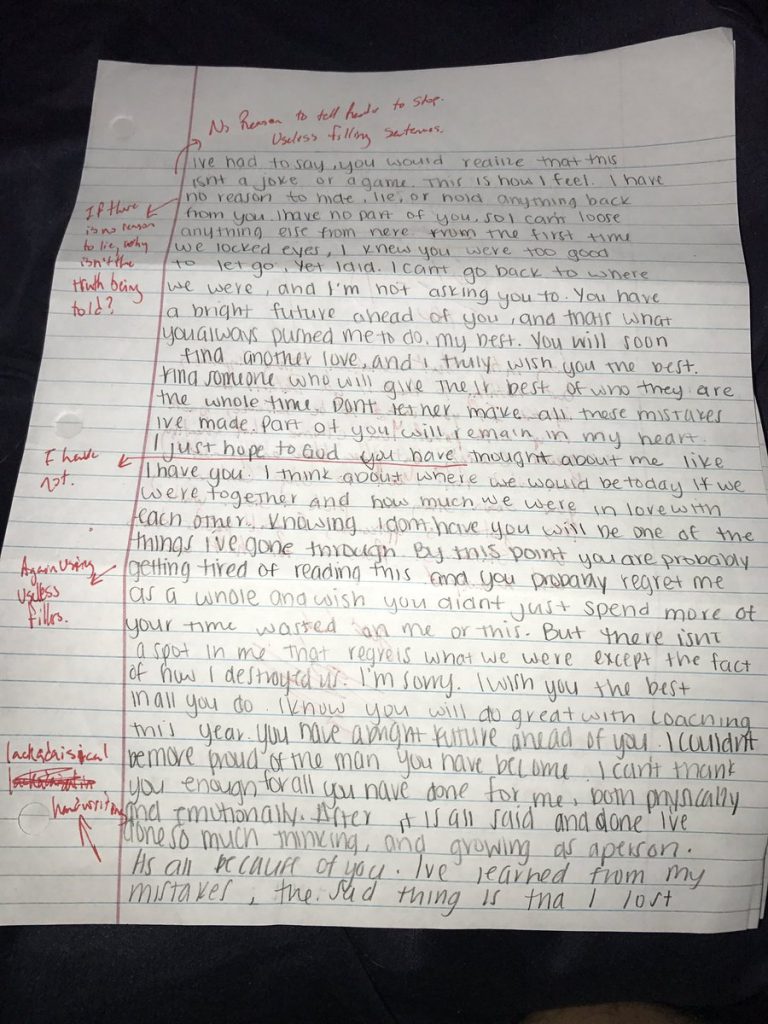 No Reason to tell reader to stop.
Useless filling sentences.
ive had to say, you would realize that this
isnt a joke or a game. This is how I feel. I have
no reason to hide, lie, or hold anything back
from you. I have no part of you, so I can't loose
anything else from here. From the first time
we locked eyes, I knew you were too good
to let go, yet I did. I cant go back to where
we were, and I'm not asking you to. You have
a bright future ahead of you, and thats what
you always pushed me to do, my best. You will soon
find another love, and I truly wish you the best.
Find someone who will give their best of who they are
the whole time. Dont let her make all these mistakes
ive made. Part of you will remain in my heart.
I just hope to God you have thought about me like
I have you. I think about where we would be today if we
were together and how much we were in love with
each other. Knowing I dont have you will be one of the
things I've gone through. By this point you are probably
getting tired of reading this and you probably regret me
as a whole and wish you didnt just spend more of
your time wasted on me or this. But there isnt
a spot in me that regrets what we were except the fact
of how I destroyed us. I'm sorry. I wish you the best
in all you do. I know you will do great with coaching
this year. You have a bright future ahead of you. I couldn't
be more proud of the man you have become. I can't thank
you enough for all you have done for me, both physically
and emotionally. After it is all said and done I've
done so much thinking, and growing as a person.
Its all because of you. I've learned from my
mistakes, the sad thing is tha I lost
If there
is no reason
to lie, why
isn't the
truth being
told?
I have
not.
Again using
useless
fillers.
lackadaisical
handwriting